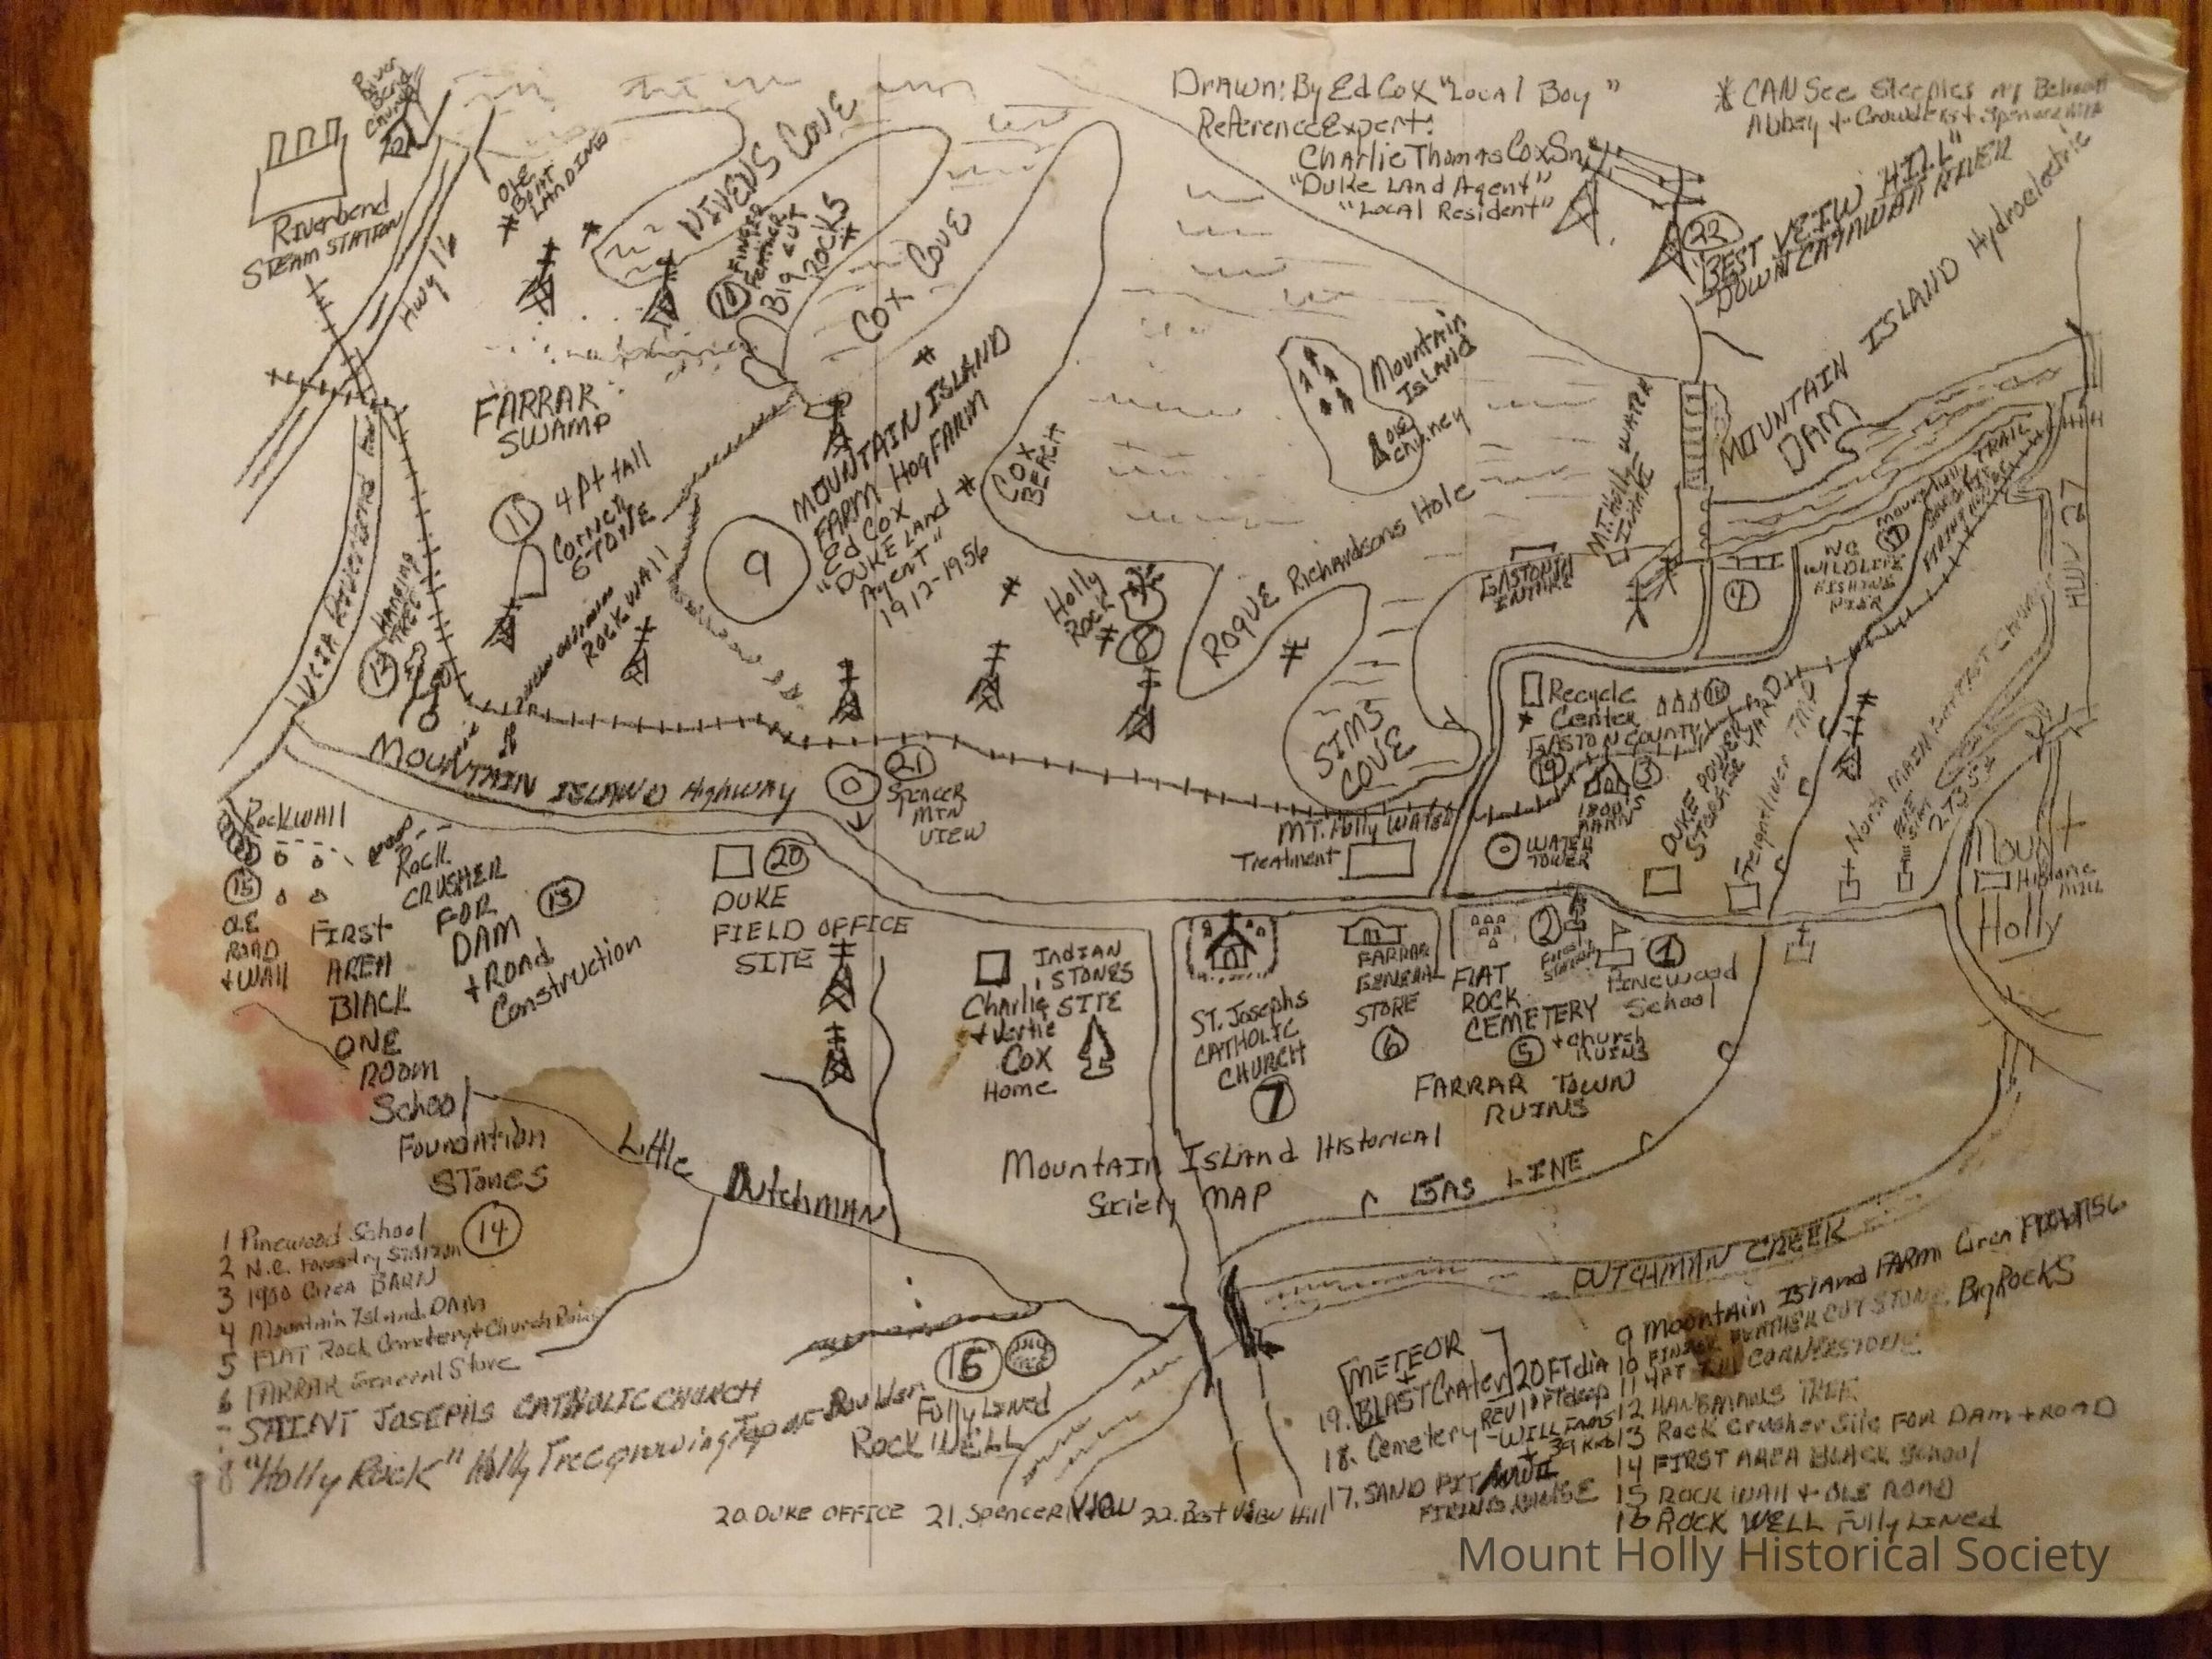 Drawn: By Ed Cox "Local Boy"
Reference Expert:
Charlie Thomas Cox Sn.
"Duke Land Agent"
"Local Resident"
* CAN See Steeples of Belmont
Abbey + Crowders + Spencer Mtn
22
"BEST VEIW HILL"
DOWN CATAWBA RIVER
River
Bend
Church
Riverbend
STEAM STATION
Hwy 16
OLE
* BOAT
LANDING
NIVENS COVE
10 FINGER
FEATHER
CUT
BIG ROCKS
COX COVE
FARRAR
SWAMP
11 4 Pt tall
Corner
STONE
ROCK WALL
9
MOUNTAIN ISLAND
FARM Hog FARM
Ed Cox
"DUKE Land
Agent"
1912-1956
COX
BEACH
Mountain
Island
Ole
Chimney
MOUNTAIN ISLAND Hydroelectric
DAM
MT. Holly WATER
INTAKE
GASTONIA
INTAKE
4
NC
WILDLIFE
FISHING
PIER
17
HWY 27
LUCIA Riverbend
HANGING
TREE
12
Holly
Rock
8
ROQUE Richardsons Hole
SIMS
COVE
Recycle
Center
GASTON COUNTY
18
19
3
1800's
BARN
WATER
TOWER
DUKE POWER
STORAGE YARD
Freightliner
North MAIN
2735
Mount
Holly
Historic
Mill
MOUNTAIN ISLAND HighWAY
21
SPENCER
MTN
VIEW
MT. Holly Water
Treatment
Rockwall
15
OLE
ROAD
+ WALL
Rock
CRUSHER
FOR
DAM
+ Road
Construction
13
FIRST
AREA
BLACK
ONE
ROOM
School
Foundation
STONES
14
20
DUKE
FIELD OFFICE
SITE
INDIAN
STONES
SITE
Charlie
+ Vertie
COX
Home
ST. Josephs
CATHOLIC
CHURCH
7
FARRAR
GENERAL
STORE
6
FLAT
ROCK
CEMETERY
5 + Church
RUINS
2
1
Pinewood
School
FARRAR TOWN
RUINS
Little Dutchman
Mountain Island Historical
Society MAP
GAS LINE
DUTCHMAN CREEK
16
Fully Lined
ROCK WELL
1 Pinewood School
2 N.C. Forestry Station
3 1900 Circa BARN
4 Mountain Island DAM
5 FLAT Rock Cemetery + Church Ruins
6 FARRAR General Store
7 SAINT JOSEPHS CATHOLIC CHURCH
8 "Holly Rock" Holly Tree growing Top of Boulder
9 Mountain Island FARM
10 FINGER FEATHER CUT STONE. Big ROCKS
11 4PT TALL CORNERSTONE
12 HANGMANS TREE
13 Rock Crusher Site FOR DAM + ROAD
14 FIRST AREA BLACK School
15 ROCK WALL + OLE ROAD
16 ROCK WELL Fully Lined
17. SAND PIT
FIRING RANGE
18. Cemetery
19. METEOR
BLAST Crater 20 FT dia
20. DUKE OFFICE 21. Spencer VIEW 22. Best View Hill
Mount Holly Historical Society